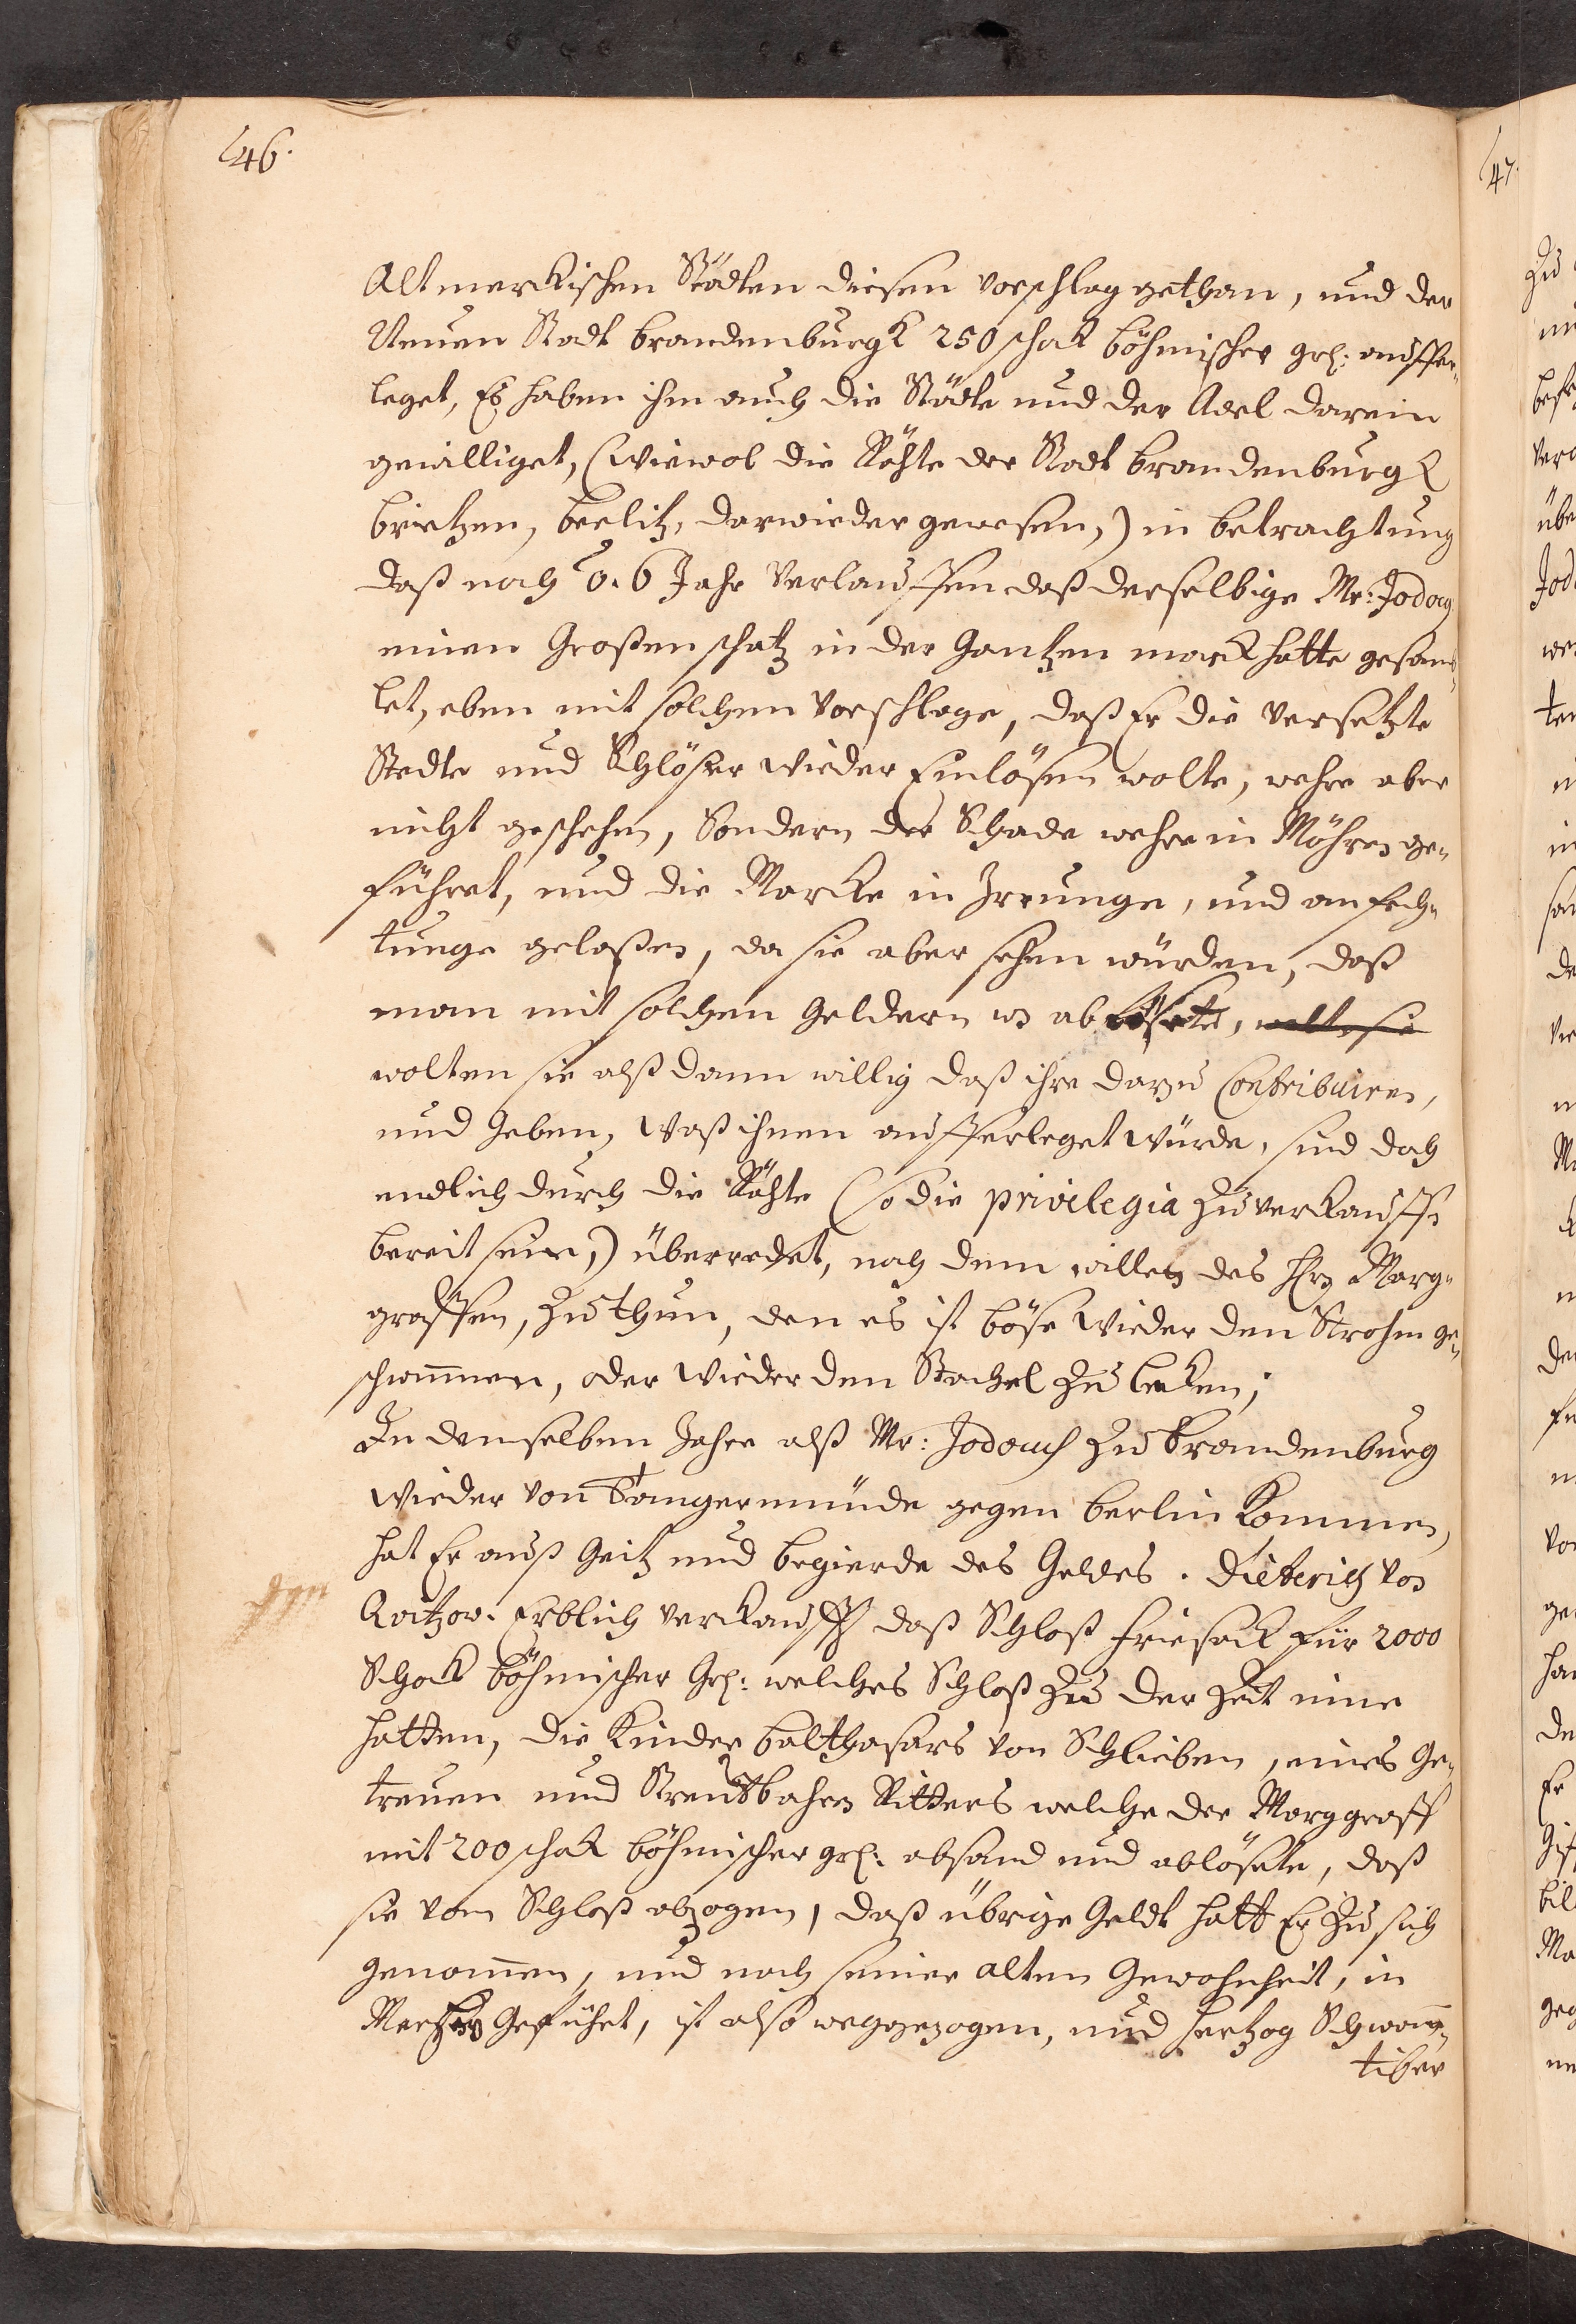 46.
Altmerckischen Städten diesen vorschlag gethan, und der
Neuen Stadt brandenburgk 250 schock böhmischer grs: auffer„
leget, Es haben ihm auch die Städte und der Adel darein
gewilliget, (wiewol die Rähte der Stadt brandenburgk
brietzen, beelitz, darwieder gewesen,) in betrachtung
daß nach 5. 6 Jahr verlauffen daß derselbige Mr: Jodocus
einen Großen schatz in der Gantzen marck hatte gesam„
let, eben mit solchem vorschlage, daß Er die versetzte
Stedte und Schlößer wieder Einlösen wolte, wehre aber
nicht geschehen, Sondern der Schade wehre in Möhren ge„
führet, und die Marcke in Irrunge, und anfech„
tunge gelaßen, da sie aber sehen würden, daß
man mit solchen geldern es ablösete, wolte sie
wolten sie alß dann willig daß ihre darzu Contribuiren,
und Geben, waß ihnen aufferleget würde, sind doch
endlich durch die Rähte (so die privilegia zu verkauffen
bereit sein,) überredet, nach dem willen des Hrn Marg„
graffen, zu thun, den es ist böse wieder den Strohm ge„
schwimmen, oder wieder den Stachel zu lecken;
In demselben Jahre alß Mr: Jodocus zu Brandenburg
wieder von Tangermünde gegen berlin kommen,
hat Er auß Geitz und begierde des Geldes. Dieterich von
Qvitzow. Erblich verkaufft daß Schloß Friesack für 2000
Schock böhmischer Grs: welches Schloß zu der Zeit inne
hatten, die Kinder balthasars von Schlieben, eines Ge„
treuen und Streutbahren Ritters welche der Marggraff
mit 200 schock böhmischer grs: absand und ablösete, daß
sie vom Schloß abzogen, daß übrige Geldt hatt Er zu sich
genommen, und nach seiner alten Gewohnheit, in
Merhen Geführt, ist also weggezogen, und Hertzog Schwan„
tiber
47.